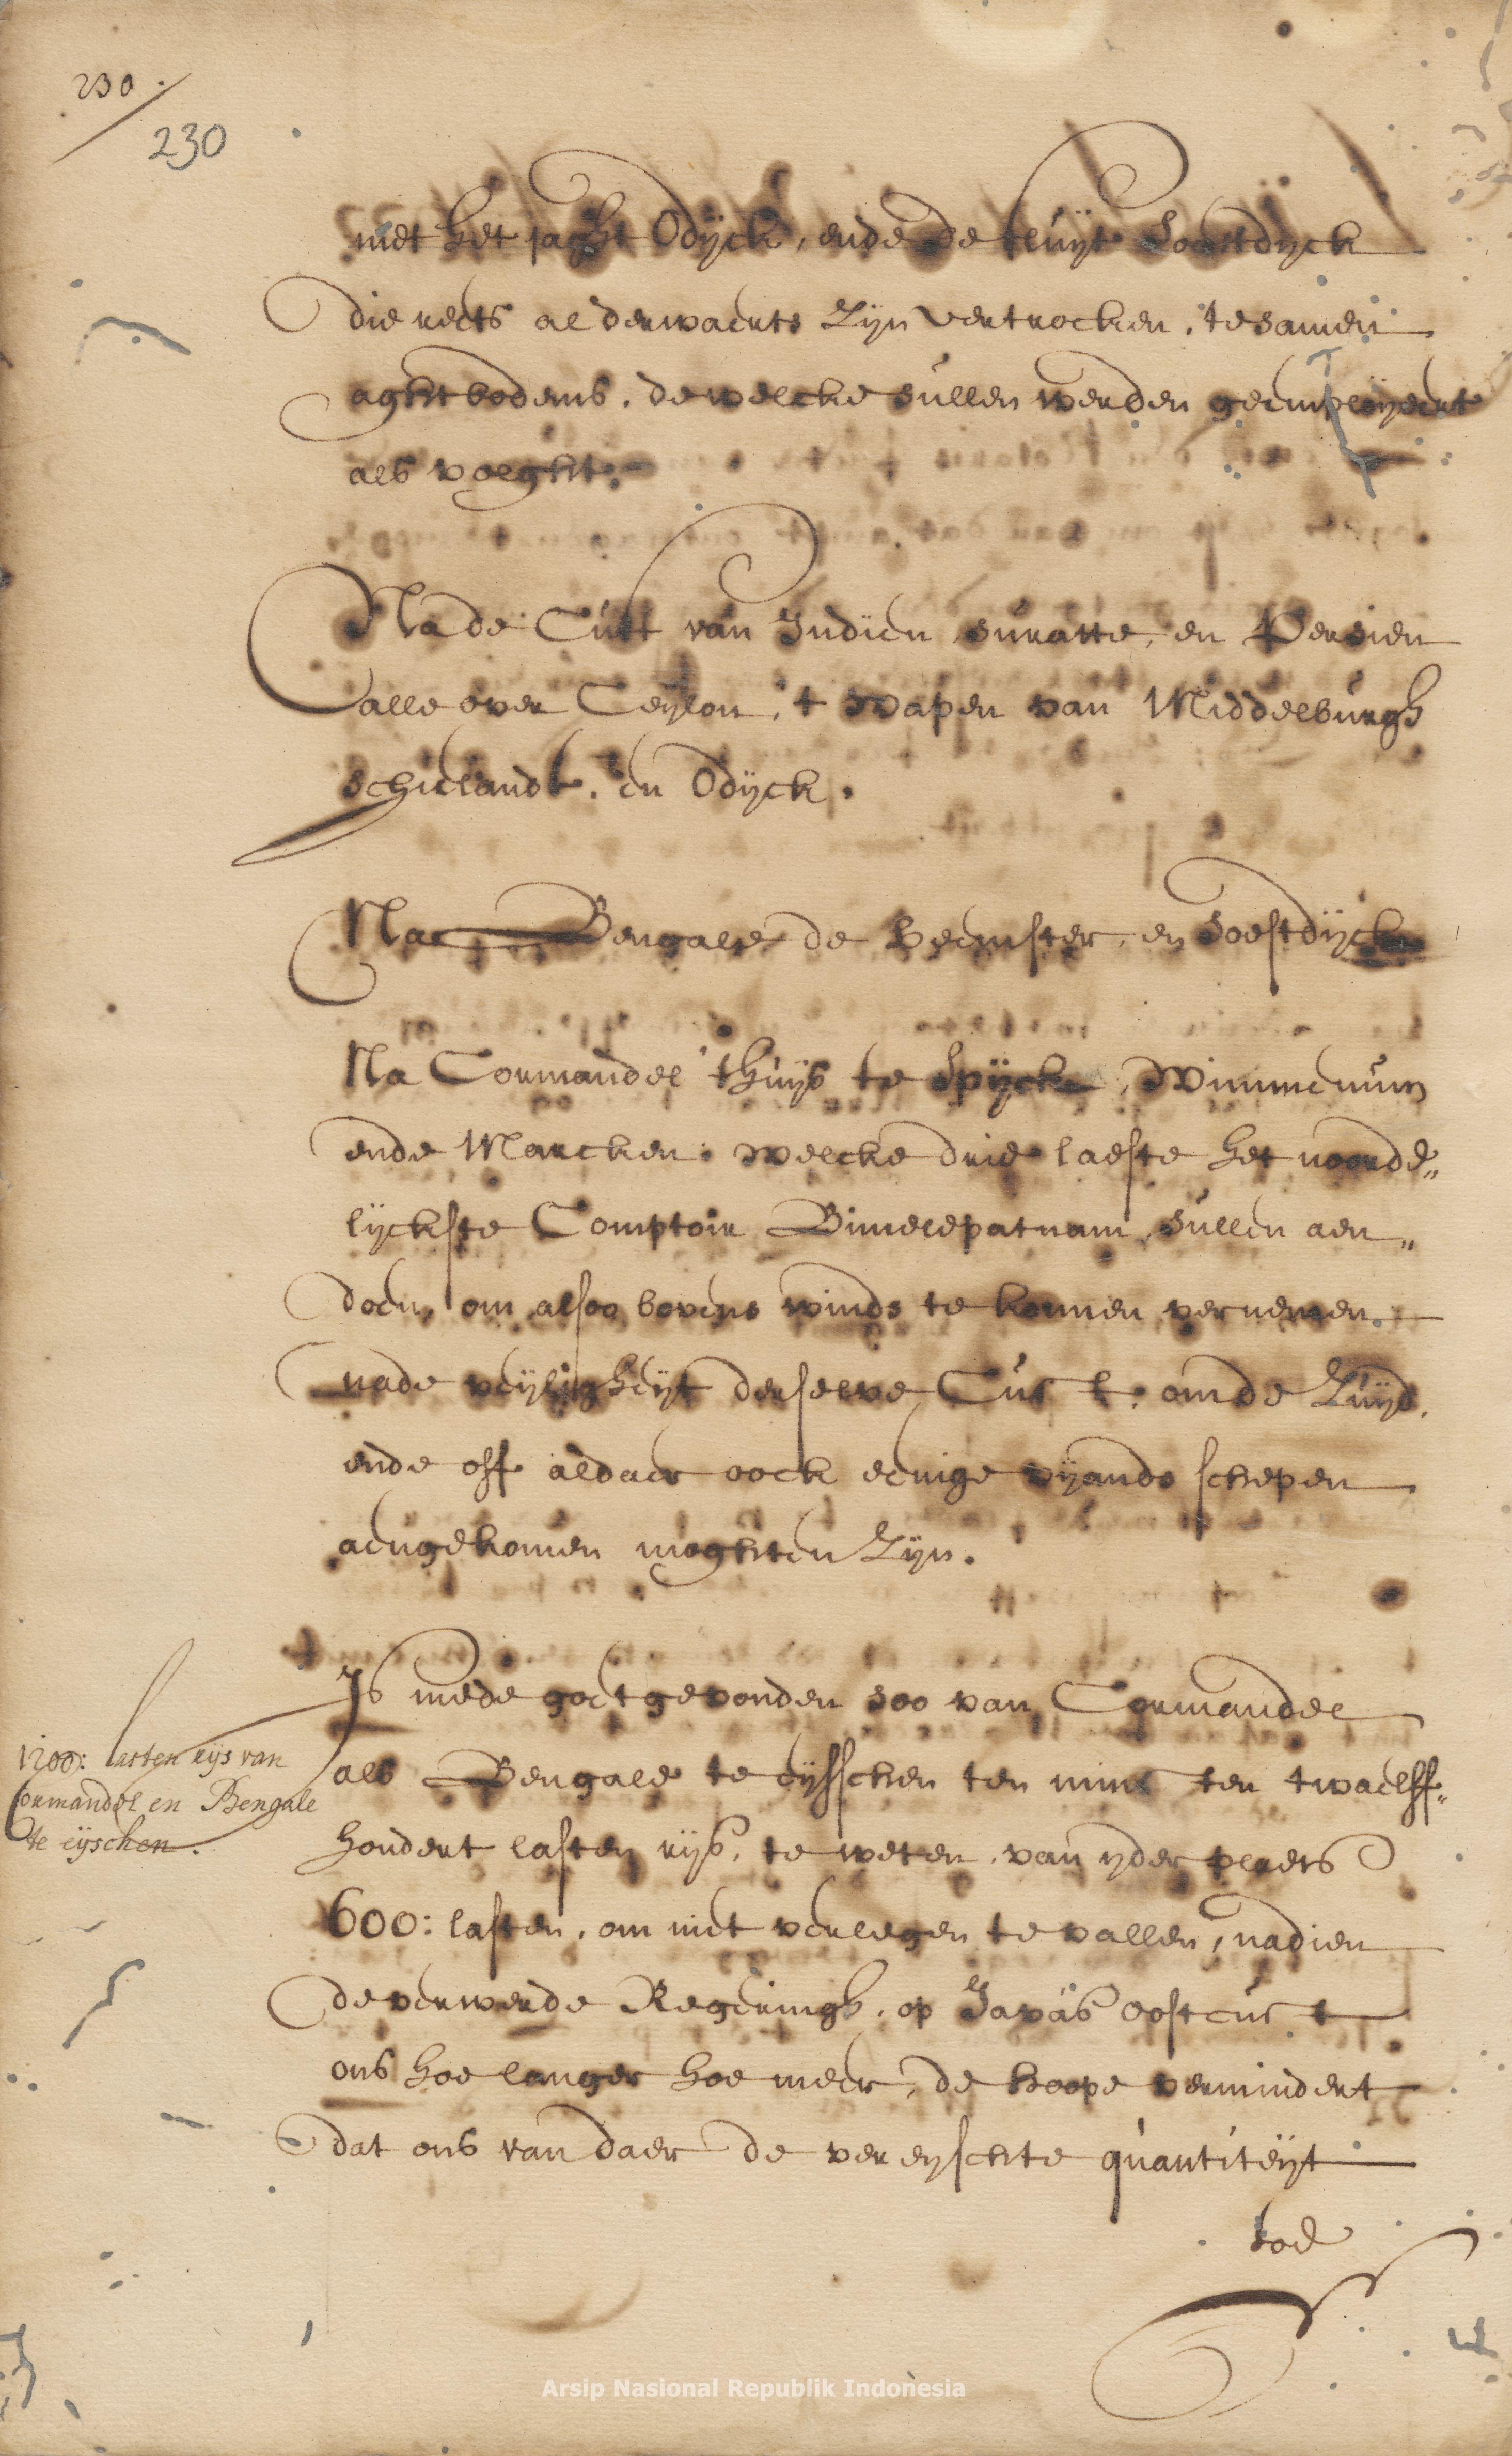 230.
230
met het jaght Odyck, ende de fluyt Soestdyck
die reets alderwaerts zyn vertrocken, te samen
aght bodems, dewelcke sullen werden geemployeert
als volght.
Na de Cust van Indien Suratte, en Persien
alle over Ceylon, 't wapen van Middelburgh
Schielandt, en Odyck.
Na Bengale de Beemster, en Soestdyck
Na Cormandel 'thuys te Spyck, Wimmenum
ende Marcken, welcke drie laeste het noorde„
lyckste Comptoir Bimelepatnam, sullen aen„
doen, om alsoo bovens winds te konnen vernemen
na de veyligheyt derselve Cust, om de Zuyd,
ende off aldaer oock eenige vyands schepen
aengekomen moghten zyn.
Is mede goet gevonden soo van Cormandel
als Bengale te eysschen ten minste twaelff„
hondert lasten rys, te weten, van yder plaets
600: lasten, om niet verlegen te vallen, nadien
de verwerde Regeringh, op Javas Oostcust
ons hoe langer hoe meer, de hoope vermindert
dat ons van daer de vereyschte quantiteyt
1200: lasten rys van
Cormandel en Bengale
te eyschen.
Arsip Nasional Republik Indonesia